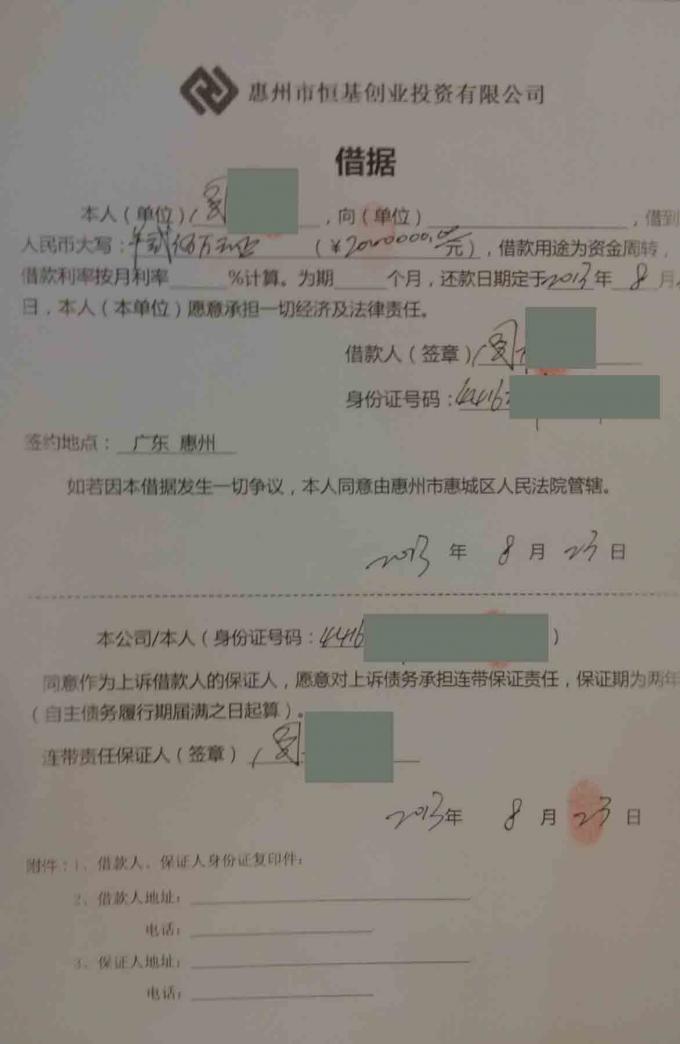 惠州市恒基创业投资有限公司
借据
本人（单位），向（单位），借到
人民币大写：贰佰万元正（¥2000000.00元），借款用途为资金周转，
借款利率按月利率 %计算。为期 个月，还款日期定于2013年 8 月
日，本人（本单位）愿意承担一切经济及法律责任。
借款人（签章）
身份证号码：4416
签约地点： 广东 惠州
如若因本借据发生一切争议，本人同意由惠州市惠城区人民法院管辖。
2013 年 8 月 23 日
本公司/本人（身份证号码：4416 ）
同意作为上诉借款人的保证人，愿意对上诉债务承担连带保证责任，保证期为两年
（自主债务履行期届满之日起算）。
连带责任保证人（签章）
2013年 8 月 23 日
附件：1、借款人、保证人身份证复印件；
2、借款人地址：
电话：
3、保证人地址：
电话：